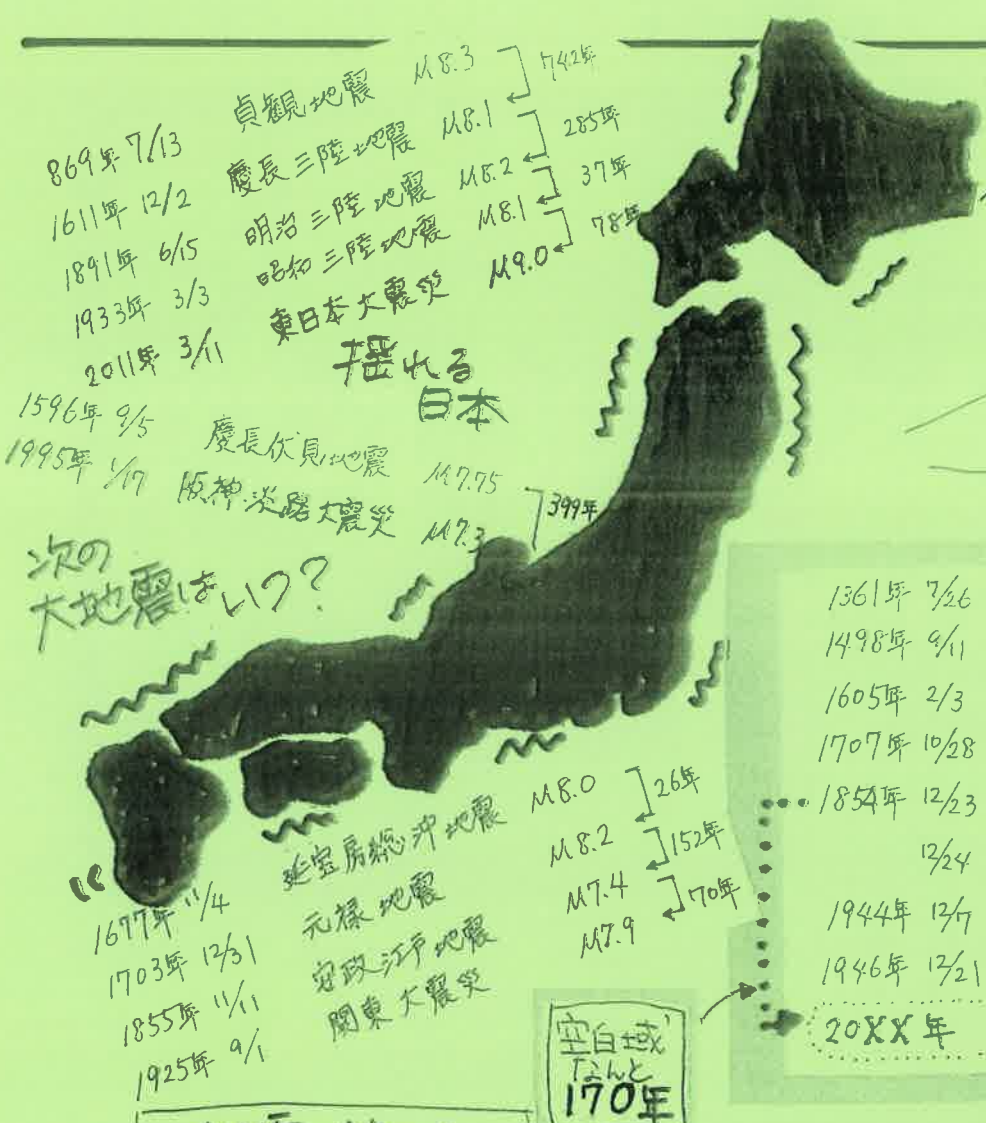 869年 7/13 貞観地震 M8.3
742年
1611年 12/2 慶長三陸地震 M8.1
285年
1891年 6/15 明治三陸地震 M8.2
37年
1933年 3/3 昭和三陸地震 M8.1
78年
2011年 3/11 東日本大震災 M9.0
揺れる
日本
1596年 9/5 慶長伏見地震 M7.75
1995年 1/17 阪神淡路大震災 M7.3
399年
次の
大地震はいつ?
1677年 11/4 延宝房総沖地震 M8.0
26年
1703年 12/31 元禄地震 M8.2
152年
1855年 11/11 安政江戸地震 M7.4
70年
1925年 9/1 関東大震災 M7.9
1361年 7/26
1498年 9/11
1605年 2/3
1707年 10/28
1854年 12/23
12/24
1944年 12/7
1946年 12/21
20XX年
空白域
なんと
170年